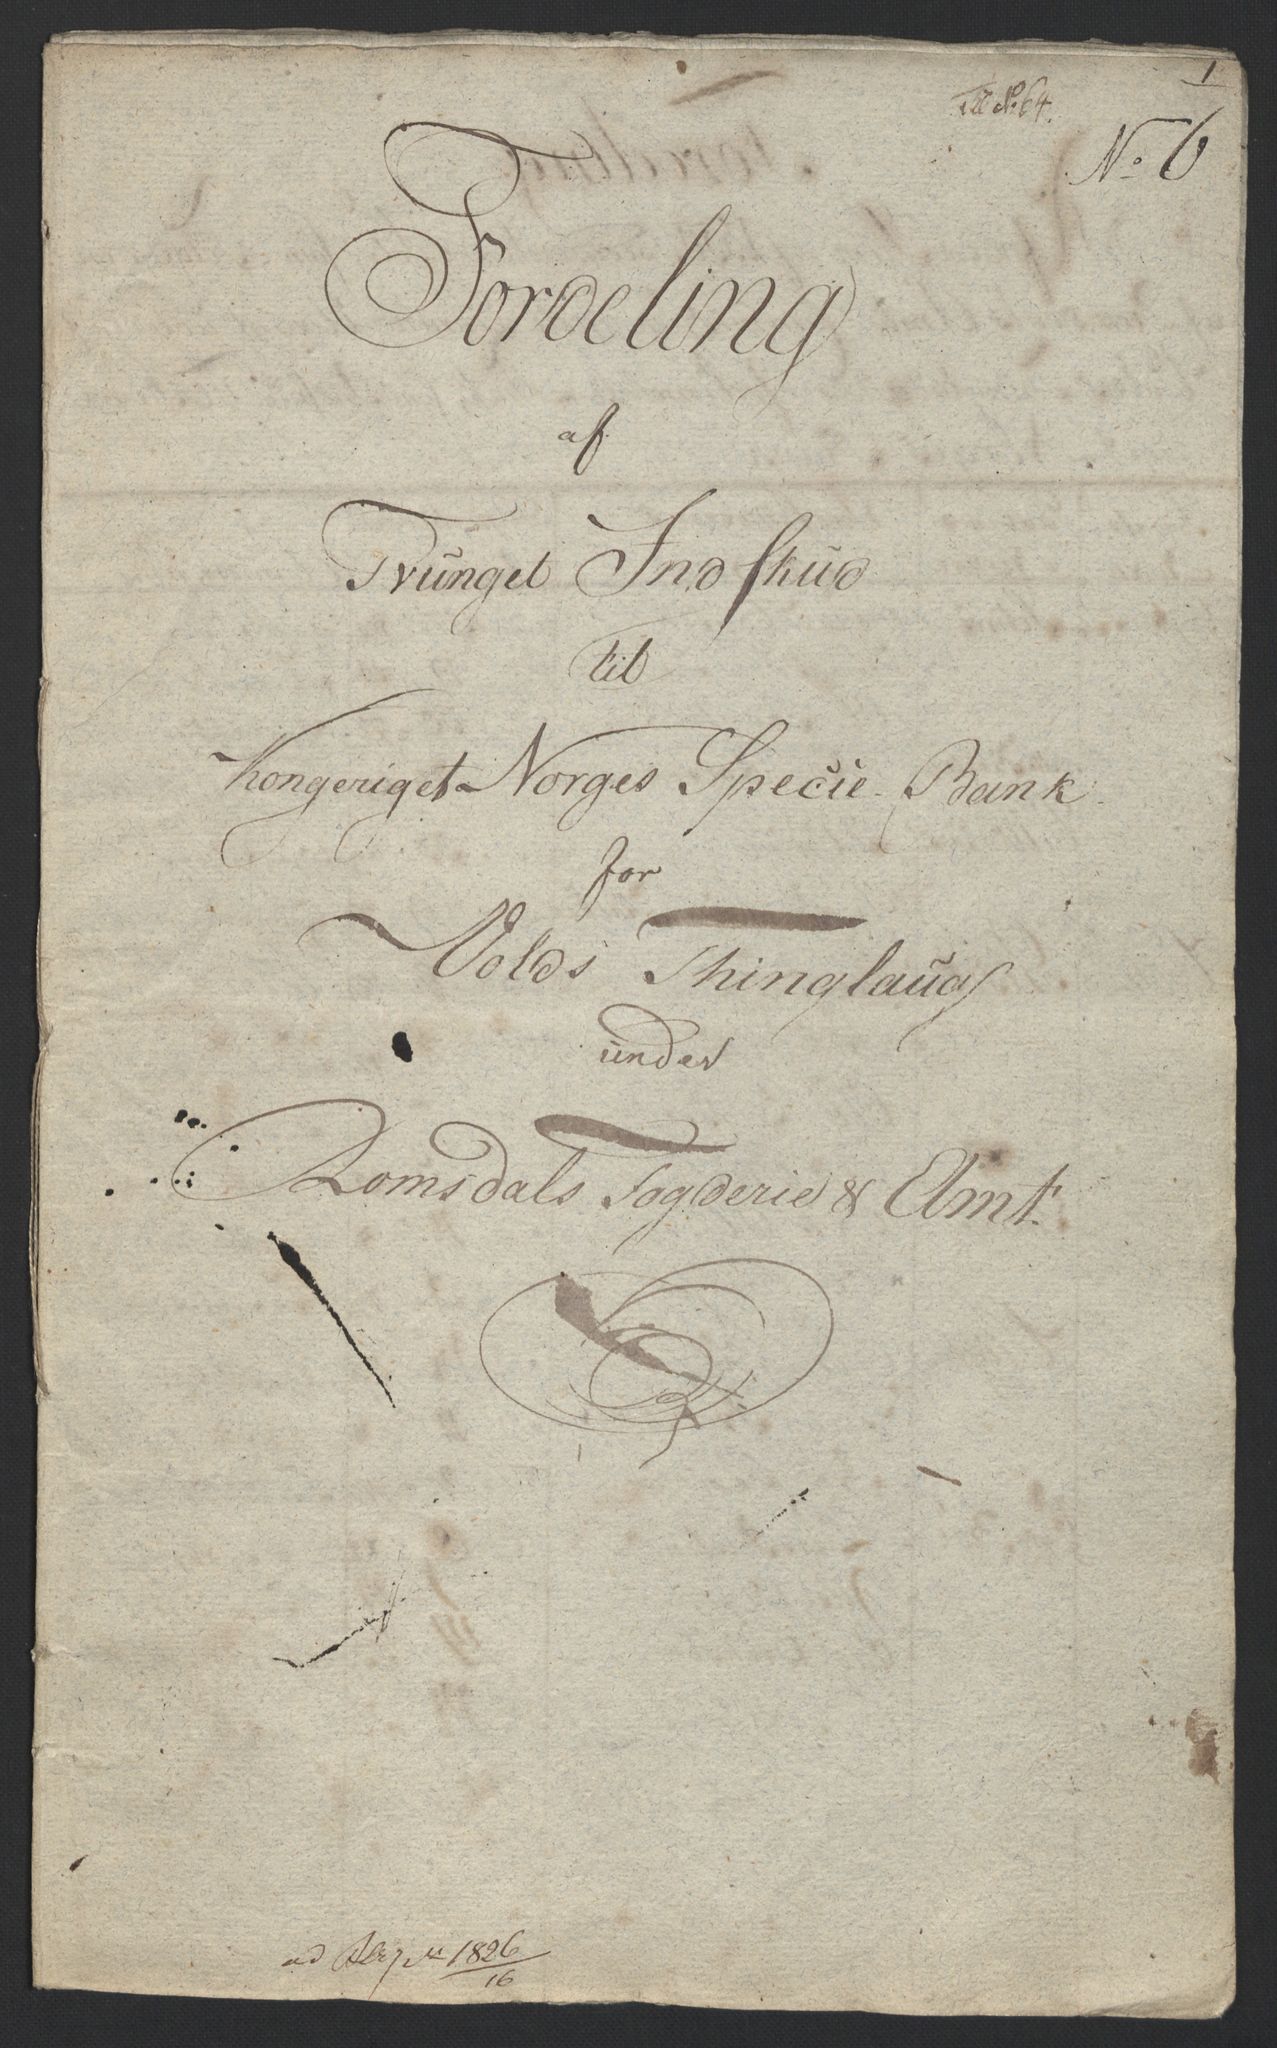 1
Til No 64.
No 6
Fordeling
af
Tvunget Indskud
til
Kongeriget Norges Specie-Bank
for
Volds Thinglaug
under
Romsdals Fogderie & Amt.
ad No 1826/16